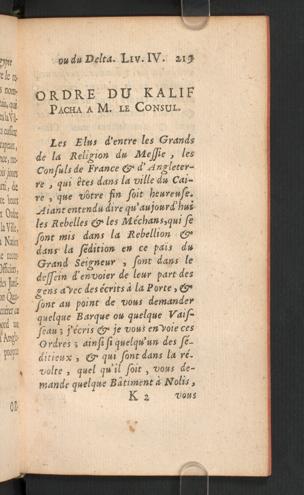 ou du Delta. LIV. IV. 219
ORDRE DU KALIF
PACHA A M. LE CONSUL.
Les Elus d'entre les Grands
de la Religion du Messie, les
Consuls de France & d'Angleter-
re, qui êtes dans la ville du Cai-
re, que vôtre fin soit heureuse.
Aiant entendu dire qu'aujourd'hui
les Rebelles & les Méchans, qui se
sont mis dans la Rebellion &
dans la sédition en ce païs du
Grand Seigneur, sont dans le
dessein d'envoier de leur part des
gens avec des écrits à la Porte, &
sont au point de vous demander
quelque Barque ou quelque Vais-
seau; j'écris & je vous envoie ces
Ordres; ainsi si quelqu'un des sé-
ditieux, & qui sont dans la ré-
volte, quel qu'il soit, vous de-
mande quelque Bâtiment à Nolis,
K 2 vous